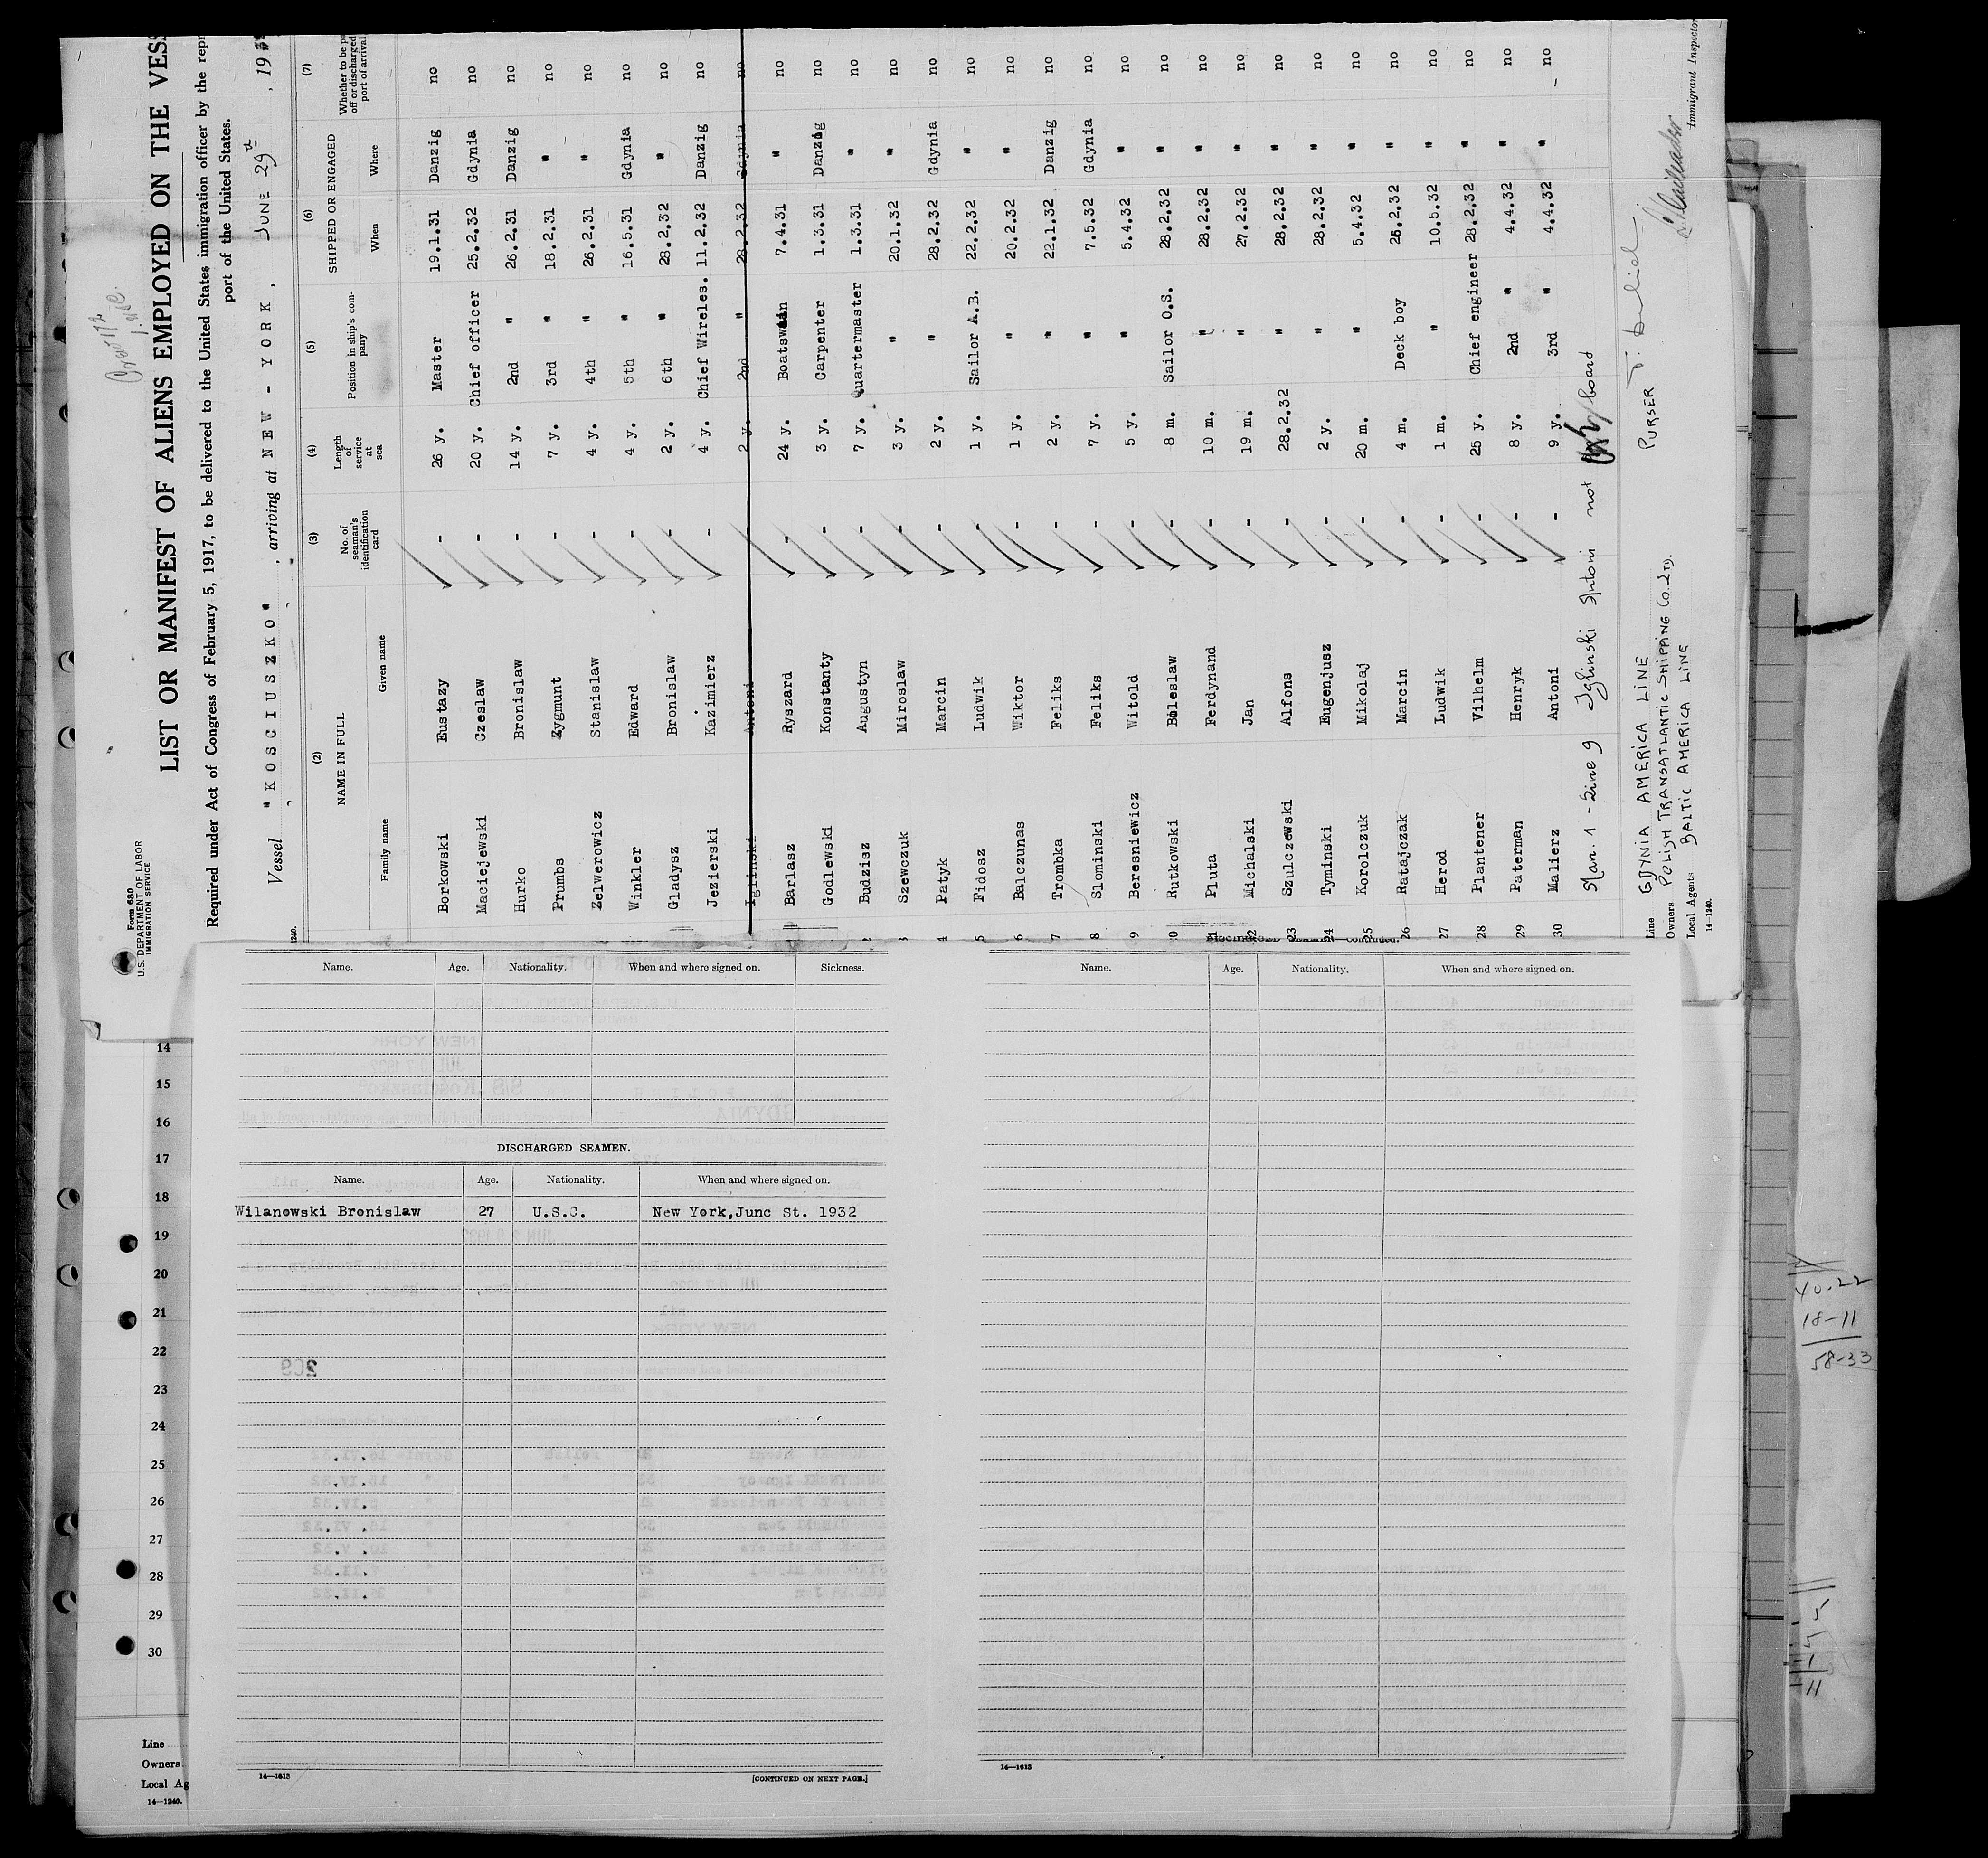 Form 680
U.S. DEPARTMENT OF LABOR
IMMIGRATION SERVICE
LIST OR MANIFEST OF ALIENS EMPLOYED ON THE VESS
Required under Act of Congress of February 5, 1917, to be delivered to the United States immigration officer by the repr
port of the United States.
Vessel "KOSCIUSZKO", arriving at NEW-YORK, JUNE 29th, 193
(2) (3) (4) (5) (6) (7)
NAME IN FULL No. of seaman's identification card Length of service at sea Position in ship's company SHIPPED OR ENGAGED Whether to be pa off or discharged port of arrival
Family name Given name When Where
Borkowski Eustazy - 26 y. Master 19.1.31 Danzig no
Maciejewski Czeslaw - 20 y. Chief officer 25.2.32 Gdynia no
Hurko Bronislaw - 14 y. 2nd " 26.2.31 Danzig no
Prumbs Zygmunt - 7 y. 3rd " 18.2.31 " no
Zelwerowicz Stanislaw - 4 y. 4th " 26.2.31 " no
Winkler Edward - 4 y. 5th " 16.5.31 Gdynia no
Gladysz Bronislaw - 2 y. 6th " 28.2.32 " no
Jezierski Kazimierz - 4 y. Chief Wireles. 11.2.32 Danzig no
Iglinski Antoni - 2 y. 2nd " 28.2.32 Gdynia no
Barlasz Ryszard - 24 y. Boatswain 7.4.31 " no
Godlewski Konstanty - 3 y. Carpenter 1.3.31 Danzig no
2 Budzisz Augustyn - 7 y. Quartermaster 1.3.31 " no
3 Szewczuk Miroslaw - 3 y. " 20.1.32 " no
4 Patyk Marcin - 2 y. " 28.2.32 Gdynia no
5 Fidosz Ludwik - 1 y. Sailor A.B. 22.2.32 " no
6 Balczunas Wiktor - 1 y. " 20.2.32 " no
7 Trombka Feliks - 2 y. " 22.1.32 Danzig no
8 Slominski Feliks - 7 y. " 7.5.32 Gdynia no
9 Beresniewicz Witold - 5 y. " 5.4.32 " no
20 Rutkowski Boleslaw - 8 m. Sailor O.S. 28.2.32 " no
21 Pluta Ferdynand - 10 m. " 28.2.32 " no
22 Michalski Jan - 19 m. " 27.2.32 " no
23 Szulczewski Alfons - 28.2.32 " 28.2.32 " no
24 Tyminski Eugenjusz - 2 y. " 28.2.32 " no
25 Korolczuk Mikolaj - 20 m. " 5.4.32 " no
26 Ratajczak Marcin - 4 m. Deck boy 25.2.32 " no
27 Herod Ludwik - 1 m. " 10.5.32 " no
28 Plantener Vilhelm - 25 y. Chief engineer 28.2.32 " no
29 Paterman Henryk - 8 y. 2nd " 4.4.32 " no
30 Malierz Antoni - 9 y. 3rd " 4.4.32 " no
Man. 1 - Line 9 Iglinski Antoni not board
Line GDYNIA AMERICA LINE PURSER
Owners POLISH TRANSATLANTIC SHIPPING Co. LTD.
Local Agents BALTIC AMERICA LINE
Immigrant Inspector
14—1240.
Name. Age. Nationality. When and where signed on. Sickness.
DISCHARGED SEAMEN.
Name. Age. Nationality. When and where signed on.
Wilanowski Bronislaw 27 U.S.C. New York,Junc St. 1932
14—1613 [CONTINUED ON NEXT PAGE.]
DISCHARGED SEAMEN—Continued.
Name. Age. Nationality. When and where signed on.
14—1613
14
15
16
17
18
19
20
21
22
23
24
25
26
27
28
29
30
Line
Owners
Local Ag
14—1240.
40-22
18-11
58-33